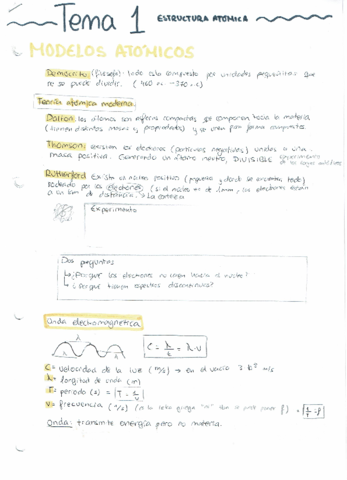 Tema 1 ESTRUCTURA ATÓMICA
MODELOS ATÓMICOS
Demócrito (filósofo): todo está compuesto por unidades pequeñitas que
no se puede dividir. (460 ac - 370 a.c)
Teoría atómica moderna.
Dalton: los átomos son esferas compactas se comparan hacia la materia
(tienen distintas masas y propiedades) y se unen para formar compuestos
Thomson: existen es electrones (partículas negativas) unidas a una
masa positiva. Generando un átomo neutro, DIVISIBLE
Rutherford: Existía un núcleo positivo (pequeño y donde se encuentra todo)
rodeado por los electrones (si el núcleo es de 1mm, los electrones están
a un km de distancia. La corteza
Experimento
Dos preguntas
↳ ¿Porque los electrones no caen hacia el núcleo?
↳ ¿Porque tienen espectros discontinuos?
Onda electromagnética
λ
λ
C = λ/t = λ·ν
C = velocidad de la luz (m/s) → en el vacío 3·10⁸ m/s
λ = longitud de onda (m)
T = periodo (s) =
ν = frecuencia (letra griega
Onda: transmite energía pero no materia.